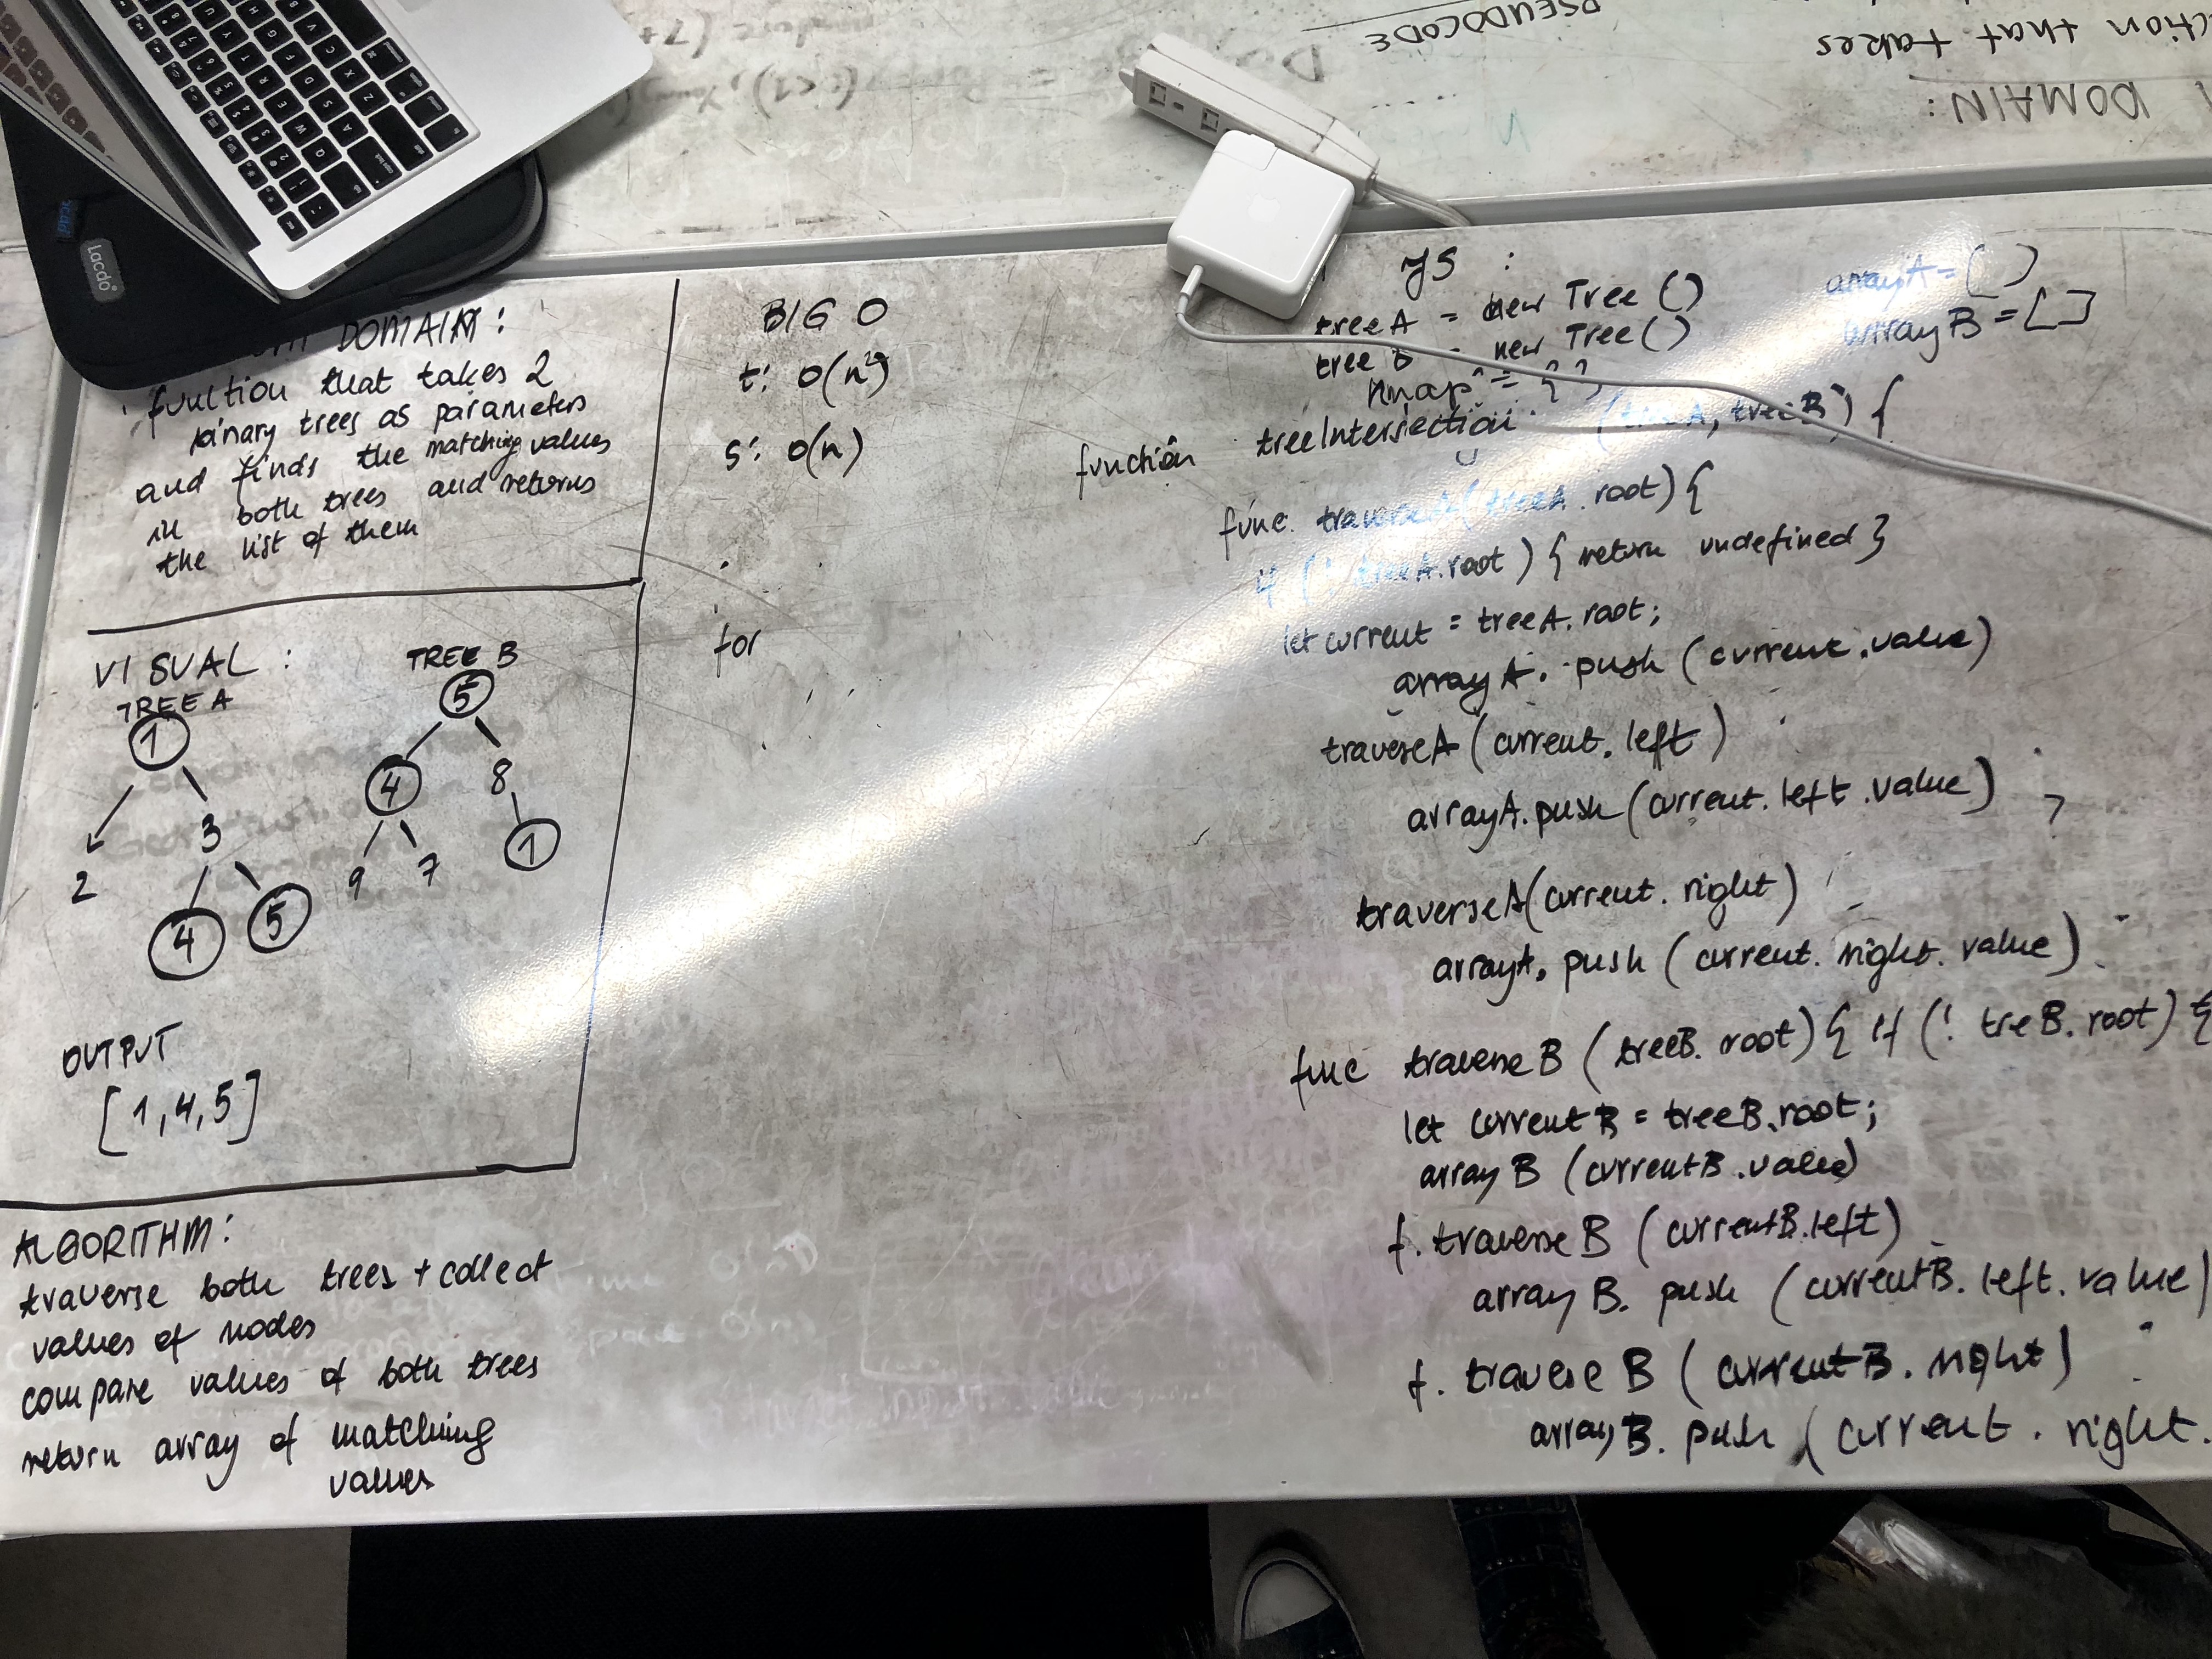 PSEUDOCODE
ction that takes
DOMAIN:
Lacdo
DOMAIN:
function that takes 2
binary trees as parameters
and finds the matching values
in both trees and returns
the list of them
VISUAL:
TREE A
1
2
3
4
5
TREE B
5
4
8
9
7
1
OUTPUT
[1,4,5]
ALGORITHM:
traverse both trees + collect
values of nodes
compare values of both trees
return array of matching
values
BIG O
t: O(n²)
s: O(n)
for
JS :
treeA = new Tree ()
tree B = new Tree ()
hmap = { }
arrayA = [ ]
arrayB = [ ]
function treeIntersection (treeA, treeB) {
func. traverseA (treeA.root) {
if (! treeA.root) { return undefined }
let current = treeA.root;
arrayA. push (current.value)
traverseA (current.left)
arrayA.push (current.left.value)
traverseA (current.right)
arrayA. push (current.right.value)
func traverse B (treeB.root) { if (! treB.root) {
let current B = treeB.root;
array B (currentB.value)
f. traverse B (currentB.left)
array B. push (currentB.left.value)
f. traverse B (currentB.right)
array B. push (current.right.